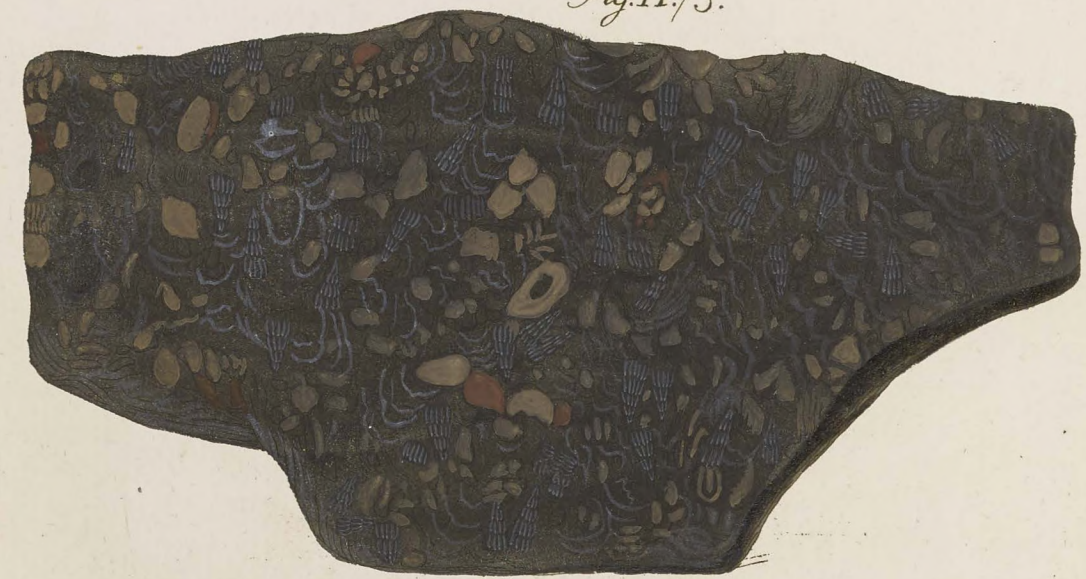 Fig. II. /3.